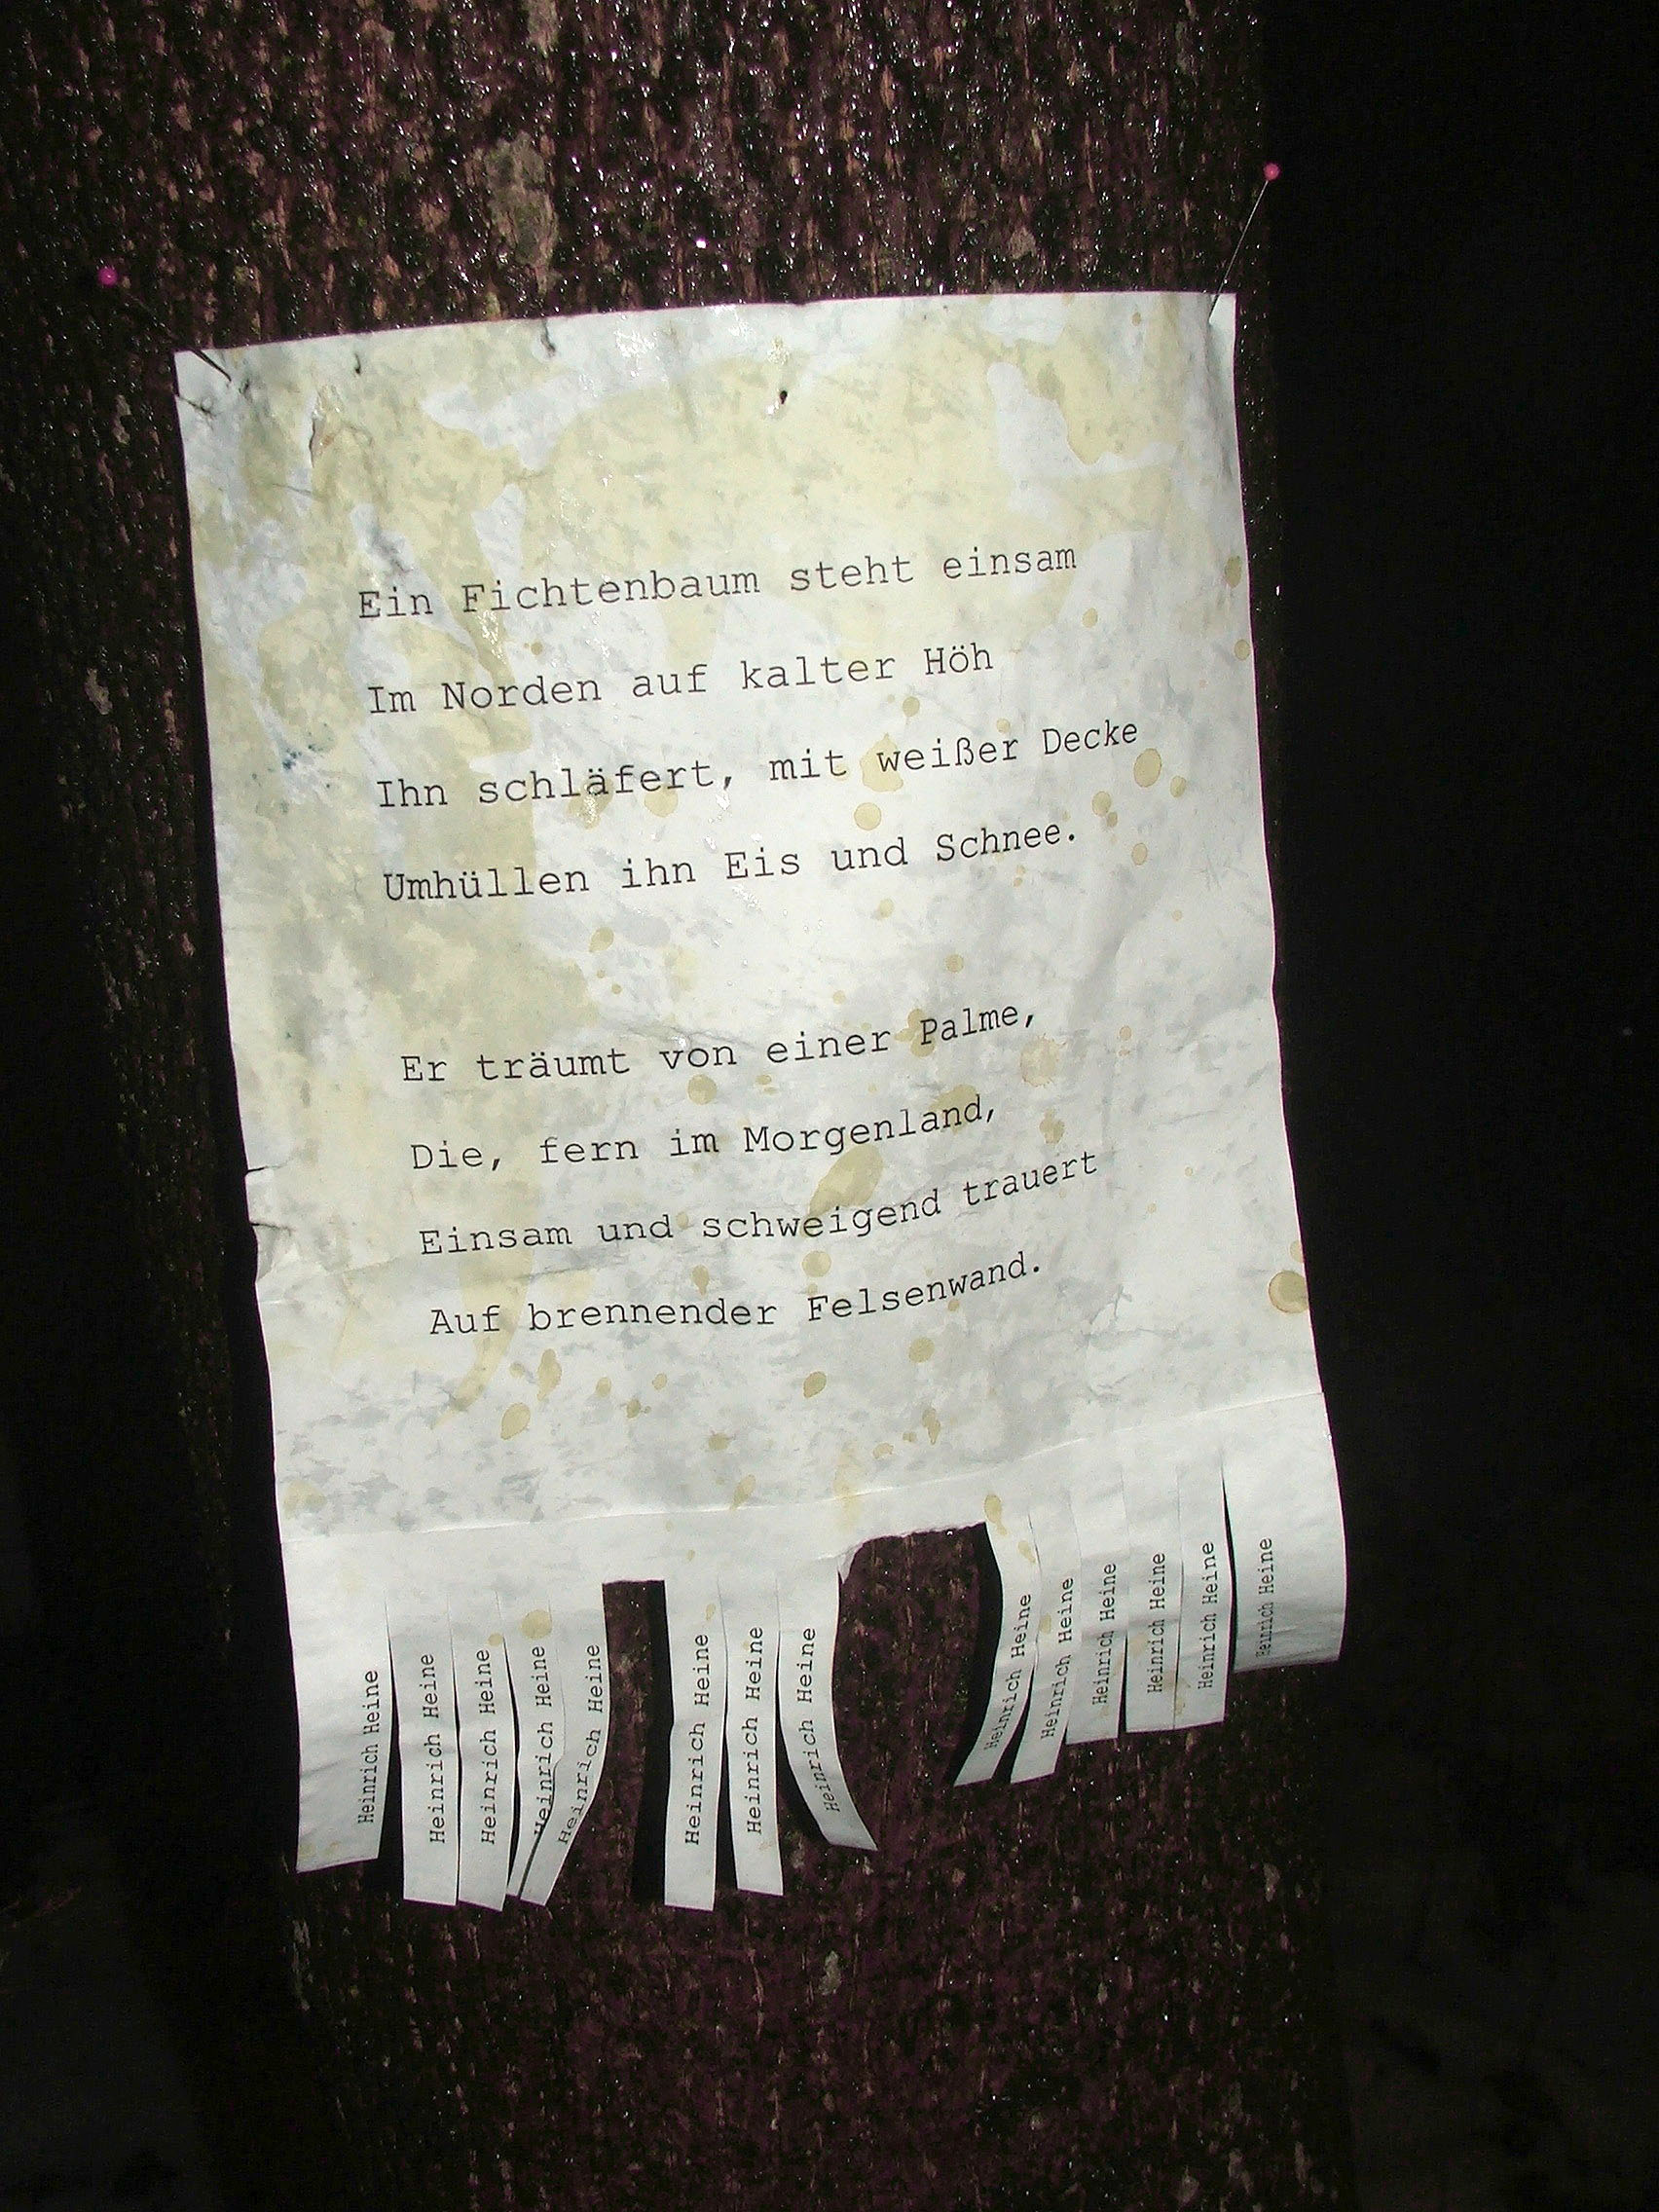 Ein Fichtenbaum steht einsam
Im Norden auf kalter Höh
Ihn schläfert, mit weißer Decke
Umhüllen ihn Eis und Schnee.
Er träumt von einer Palme,
Die, fern im Morgenland,
Einsam und schweigend trauert
Auf brennender Felsenwand.
Heinrich Heine
Heinrich Heine
Heinrich Heine
Heinrich Heine
Heinrich Heine
Heinrich Heine
Heinrich Heine
Heinrich Heine
Heinrich Heine
Heinrich Heine
Heinrich Heine
Heinrich Heine
Heinrich Heine
Heinrich Heine